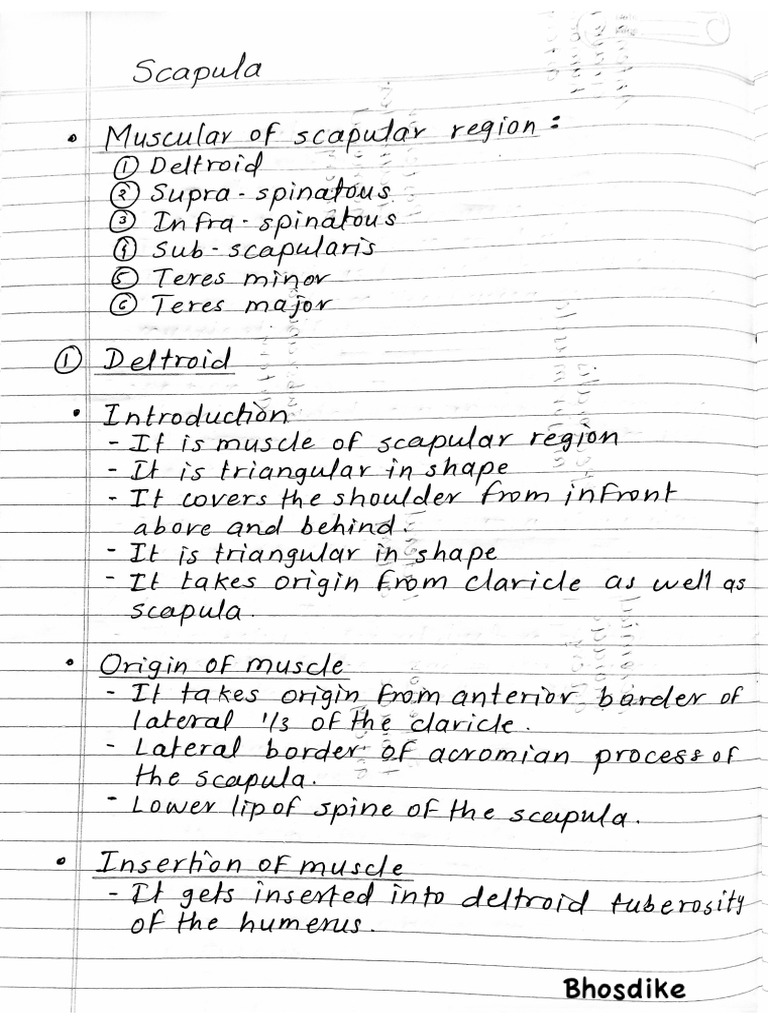 Scapula
• Muscular of scapular region:
① Deltroid
② Supra-spinatous
③ Infra-spinatous
④ Sub-scapularis
⑤ Teres minor
⑥ Teres major
① Deltroid
• Introduction
- It is muscle of scapular region
- It is triangular in shape
- It covers the shoulder from infront
above and behind.
- It is triangular in shape
- It takes origin from claricle as well as
scapula.
• Origin of muscle
- It takes origin from anterior barder of
lateral 1/3 of the claricle.
- Lateral border of acromian process of
the scapula.
- Lower lip of spine of the scapula.
• Insertion of muscle
- It gets inserted into deltroid tuberosity
of the humerus.
Bhosdike